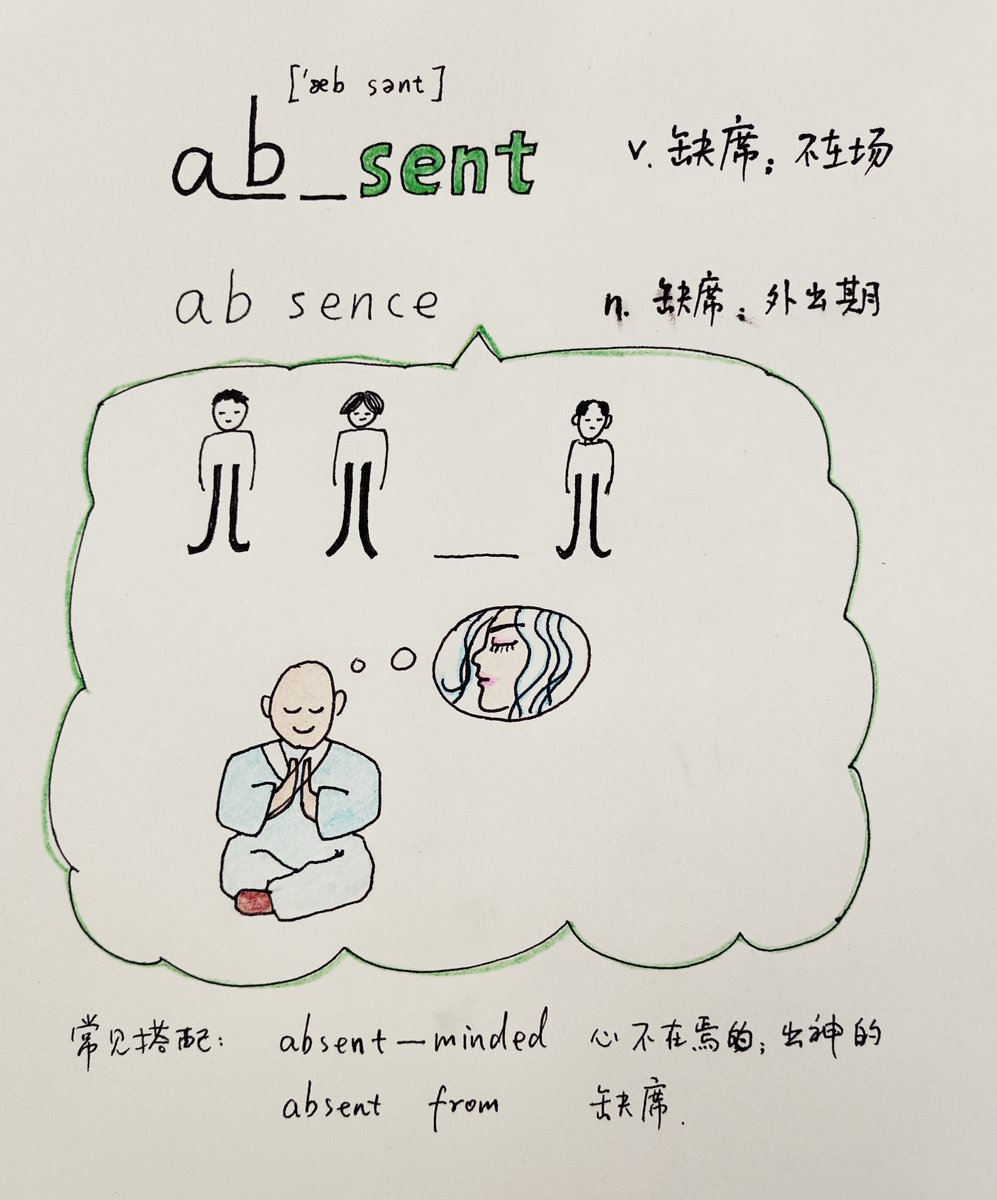 ['æb sənt]
ab_sent v. 缺席；不在场
absence n. 缺席；外出期
常见搭配： absent—minded 心不在焉的；出神的
absent from 缺席.